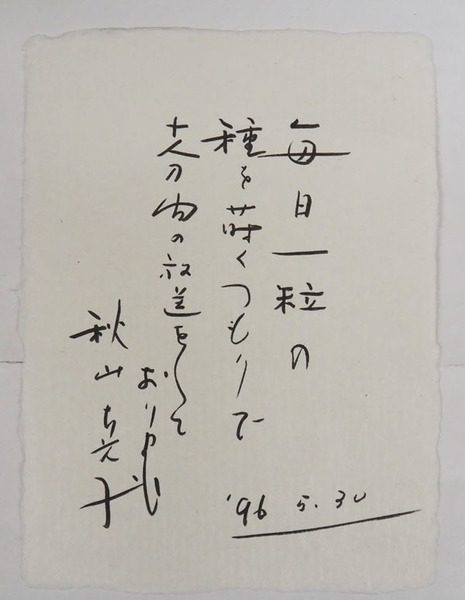 毎日一粒の
種を蒔くつもりで
十分間の放送をして
おります
秋山ちえ子
'96 5.30